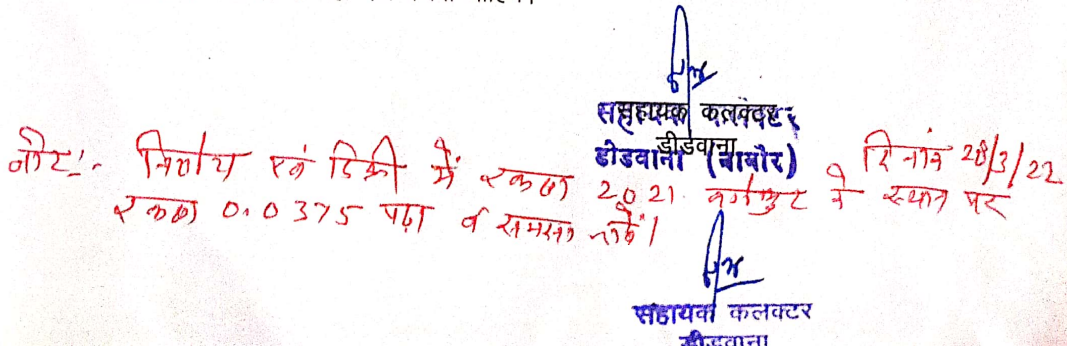 सहायक कलक्टर
डीडवाना
डीडवाना (नागौर)
नोट:- निर्णय एवं डिक्री में रकबा 2021 वर्गफुट के स्थान पर
दिनांक 28/3/22
रकबा 0.0375 पढ़ा व समझा जावें।
सहायक कलक्टर
डीडवाना